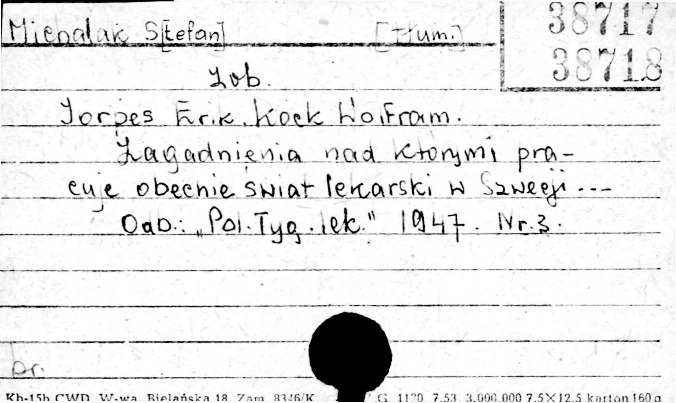 Michalak S[tefan] [tłum.]
38717
38718
Zob.
Jorpes Erik. Kock Wolfram.
Zagadnienia nad którymi pra-
cuje obecnie świat lekarski w Szwecji ...
Odb.: „Pol. Tyg. lek." 1947. Nr. 3.
br.
Kh-15b CWD, W-wa, Bielańska 18. Zam. 8346/K G. 1120. 7.53. 3.000.000 7.5×12.5 karton 160 g